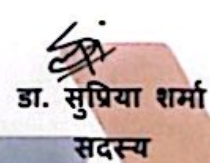 डा. सुप्रिया शर्मा
सदस्य